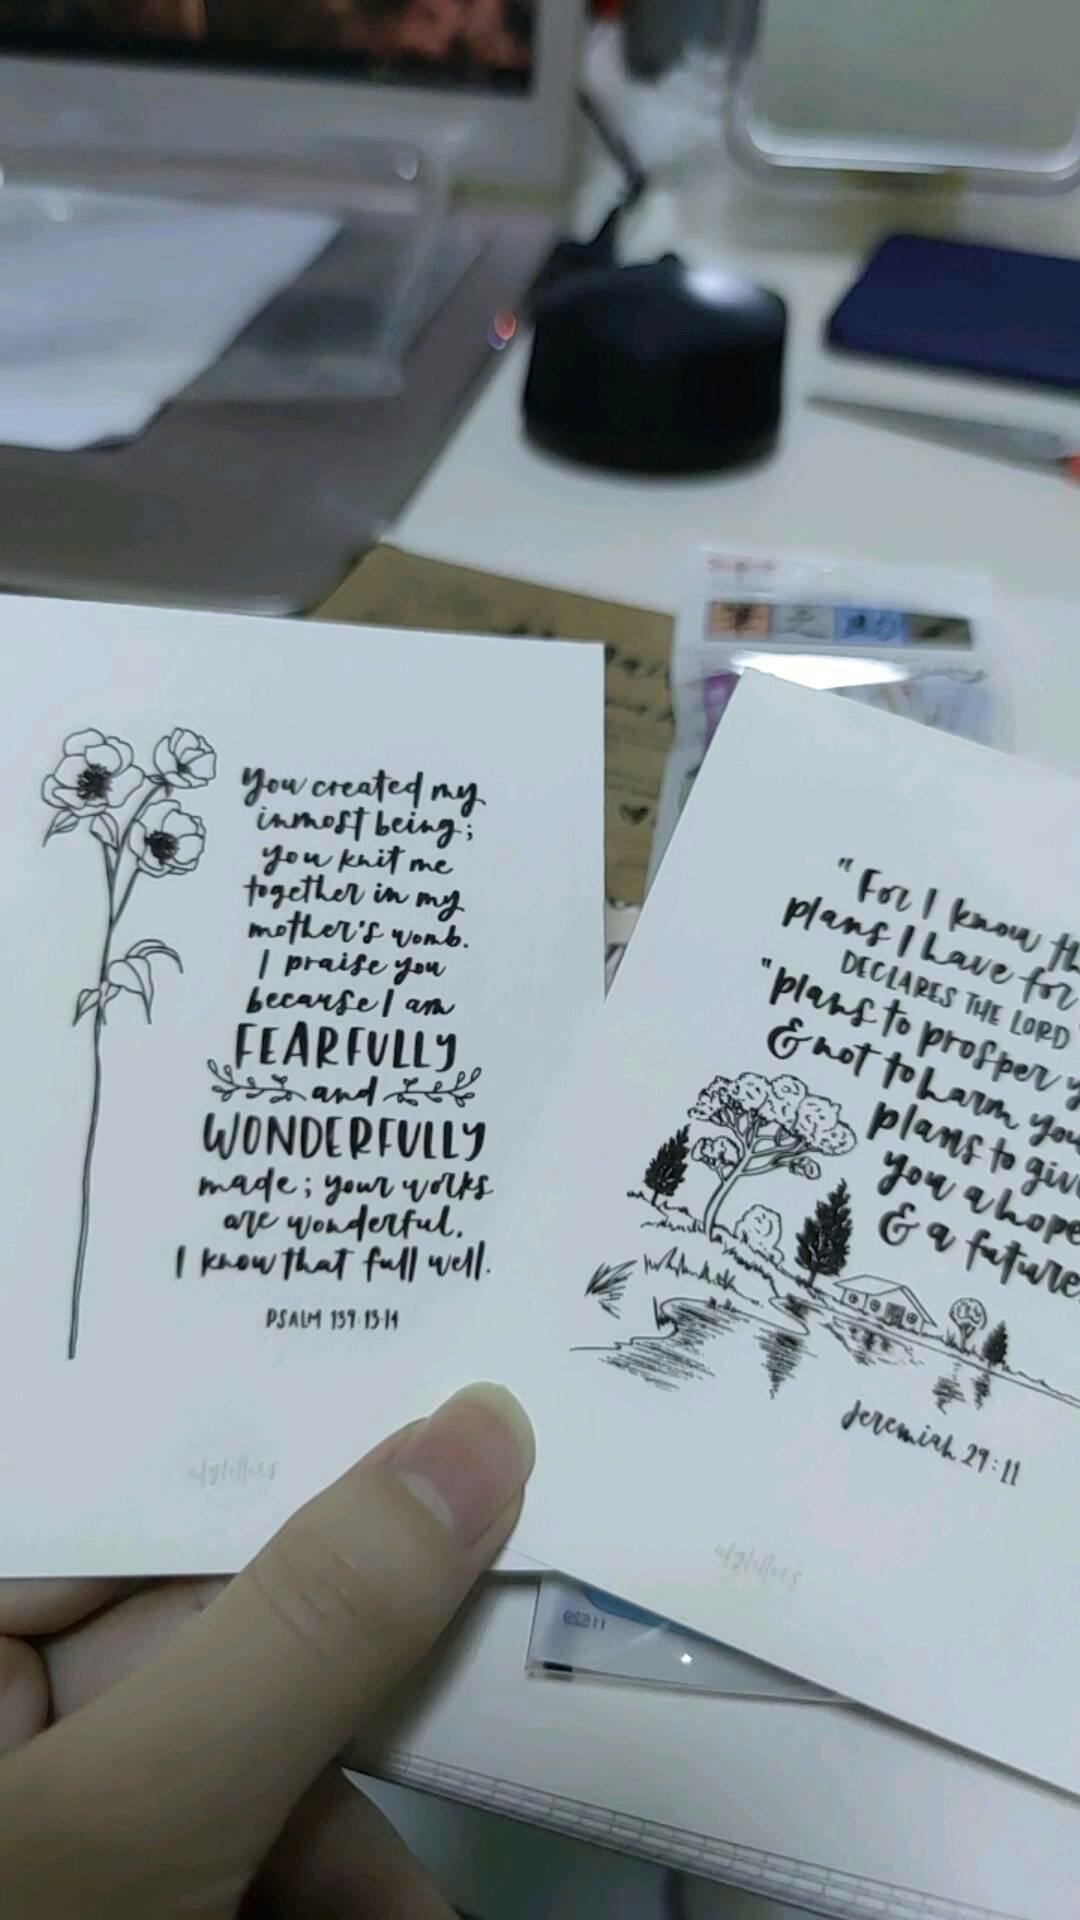 You created my
inmost being;
you knit me
together in my
mother's womb.
I praise you
because I am
FEARFULLY
and
WONDERFULLY
made; your works
are wonderful,
I know that full well.
PSALM 139:13-14
"For I know
plans I have for
DECLARES THE LORD
"plans to prosper
& not to harm you
plans to
you a hope
& a future
Jeremiah 29:11
11629